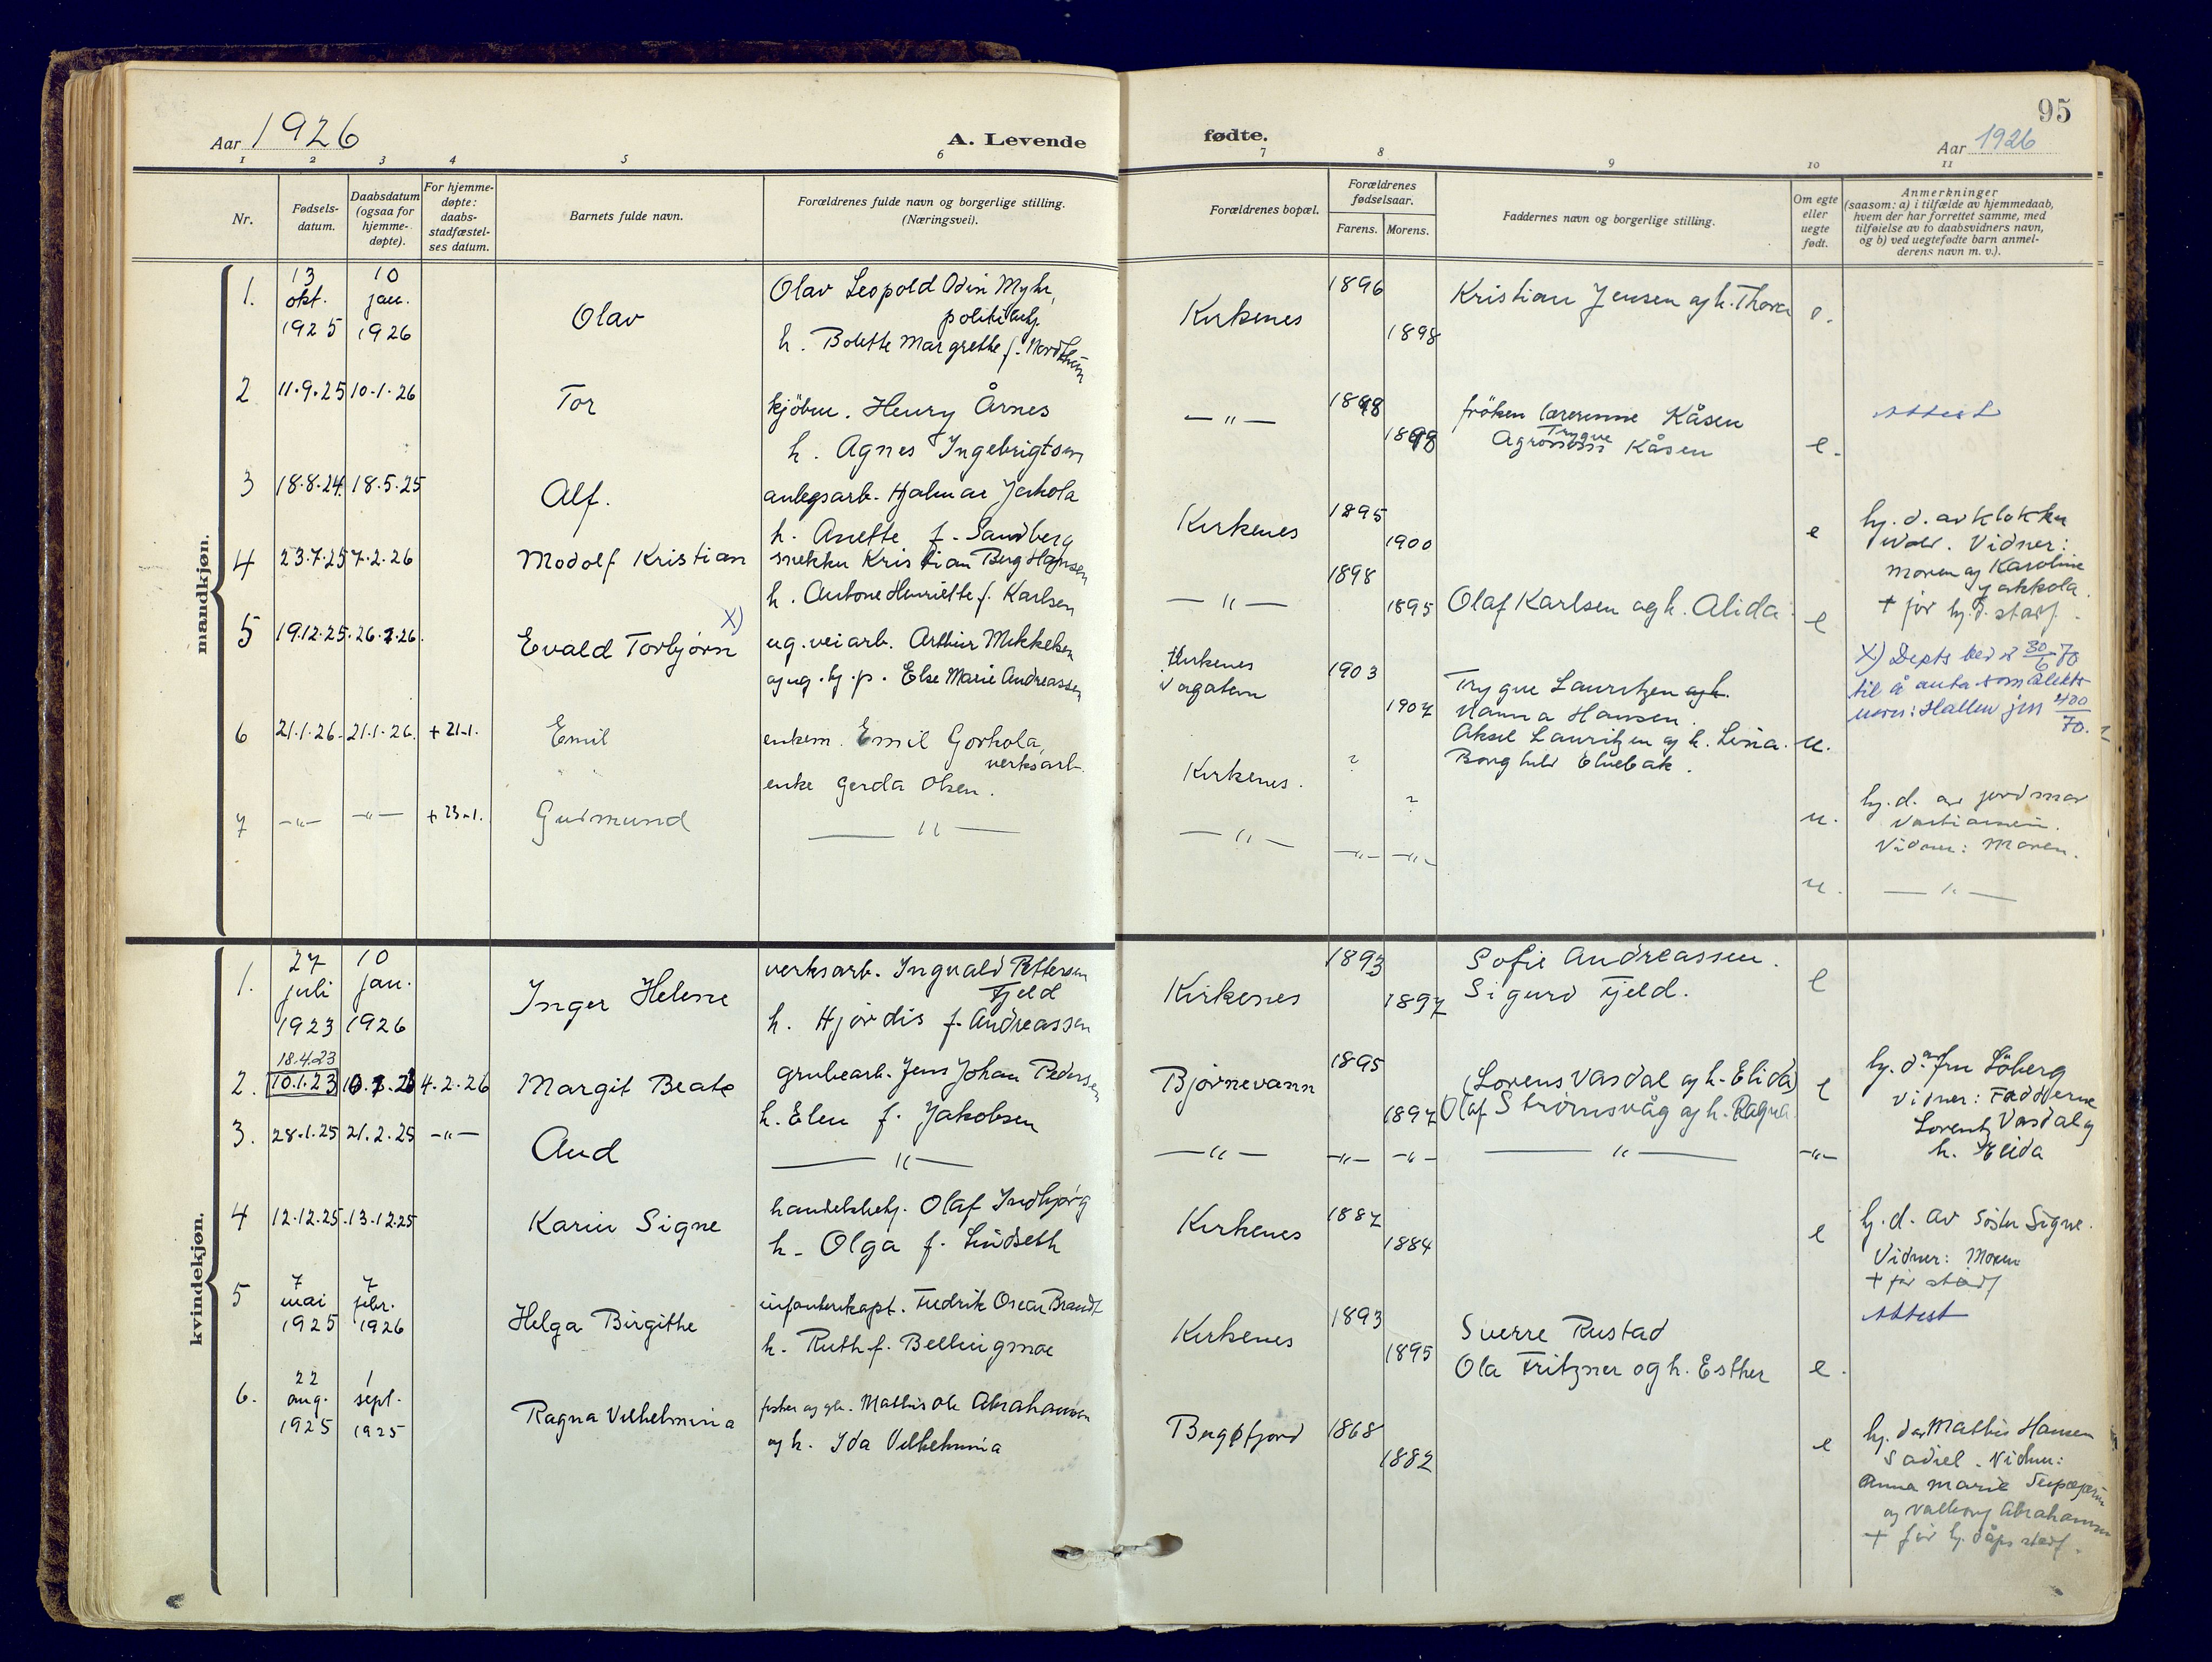 95
Aar 1926
A. Levende
fødte.
Aar 1926
1 2 3 4 5 6 7 8 9 10 11
Nr.
Fødsels-
datum.
Daabsdatum
(ogsaa for
hjemme-
døpte).
For hjemme-
døpte:
daabs-
stadfæstel-
ses datum.
Barnets fulde navn.
Forældrenes fulde navn og borgerlige stilling.
(Næringsvei).
Forældrenes bopæl.
Forældrenes
fødselsaar.
Farens. Morens.
Faddernes navn og borgerlige stilling.
Om egte
eller
uegte
født.
Anmerkninger
(saasom: a) i tilfælde av hjemmedaab,
hvem der har forrettet samme, med
tilføielse av to daabsvidners navn,
og b) ved uegtefødte barn anmel-
derens navn m. v.).
mandkjøn.
1. 13 okt. 1925
10 jan. 1926
Olav
Olav Leopold Odin Myhr,
h. Bolette Margrethe f.
Kirkenes
1896
1898
Kristian Jensen og h. Thora
e.
2 11.9.25 10.1.26
Tor
kjöbm. Henry Årnes
h. Agnes Ingebrigtsen
— " —
1898
1898
fröken lærerinne Kåsen
Agronom Trygve Kåsen
e.
Attest
3 18.8.24. 18.5.25
Alf.
anlegsarb. Hjalmar
h. Anette f. Sandberg
Kirkenes
1895
1900
e
hj. d. av klokker
Vidner:
moren og Karoline
Jakkola.
+ før hj. d. stadf.
4 23.7.25 7.2.26
Modolf Kristian
snekker Kristian Berg Hansen
h. Antone Henriette f. Karlsen
— " —
1898
1895
Olaf Karlsen og h. Alida
e
5 19.12.25. 26.2.26.
Evald Torbjørn X)
ug. veiarb. Arthur Mikkelsen
og ug. hj. p. Else Marie Andreassen
Kirkenes
1903
1907
Trygve Lauritzen og h.
Hanna Hansen.
Aksel Lauritzen og h. Lina.
Borghild
u.
X) Depts bev. 30/6-70
til å anta som slekts-
navn: Hallen jnr 400/70.
6 21.1.26. 21.1.26. + 21-1.
Emil
enkem. Emil Gorkola,
verksarb.
enke Gerda Olsen.
Kirkenes.
?
?
u.
hj. d. av jordmor
Vidner: Moren.
7 —"— —"— + 23-1.
Gudmund
— " —
— " —
—"— —"—
u.
— " —
kvindekjøn.
1. 27 juli 1923
10 jan. 1926
Inger Helene
verksarb. Ingvald Pettersen
Fjeld
h. Hjørdis f. Andreassen
Kirkenes
1893
1897
Sofie Andreassen.
Sigurd Fjeld.
e
2. 18.4.23
10.1.23
4.2.26
Margit Beate
grubearb. Jens Johan Pedersen
h. Elen f. Jakobsen
Bjørnevann
1895
1897
(Lorens Vasdal og h. Elida)
Olaf Strømsvåg og h. Ragna.
e
hj. d. av fru Löberg
vidner: Fadderne
Lorentz Vasdal og
h. Elida
3. 28.1.25 21.2.25 —"—
Aud
— " —
— " —
—"— —"—
— " —
—"—
4 12.12.25. 13.12.25
Karin Signe
handelsbetj. Olaf Indbjørg
h. Olga f. Lindseth
Kirkenes
1887
1884
e
hj. d. av Söster Signe.
Vidner: Moren
+ før stadf
5 7 mai 1925
7 febr. 1926
Helga Birgithe
infanterikapt. Fredrik Oscar Brandt
h. Ruth f. Bellingmoe
Kirkenes
1893
1895
Sverre Rustad
Ola Fritzner og h. Esther
e.
Attest
6. 22 aug. 1925
1 sept. 1925
Ragna Vilhelmina
fisker og gb. Mathis Ole Abrahamsen
og h. Ida Vilhelmina
Bugøfjord
1868
1882
e
hj. d av Mathis Hansen
Sadiel. Vidner:
Anna Marie
og Valborg Abrahamsen
+ før hj. dåps stadf.